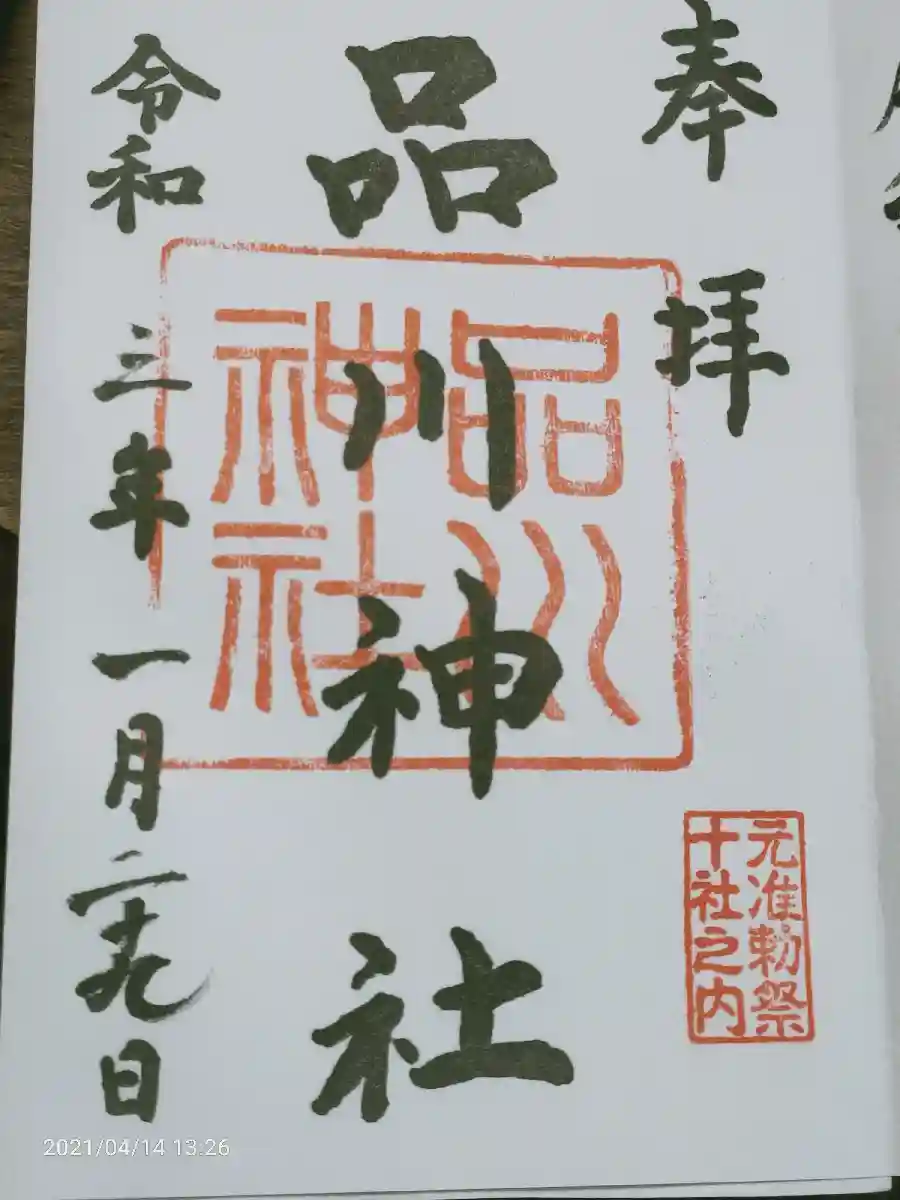 奉拝
品川神社
令和三年一月二十九日
品川
神社
元准勅祭
十社之内
2021/04/14 13:26